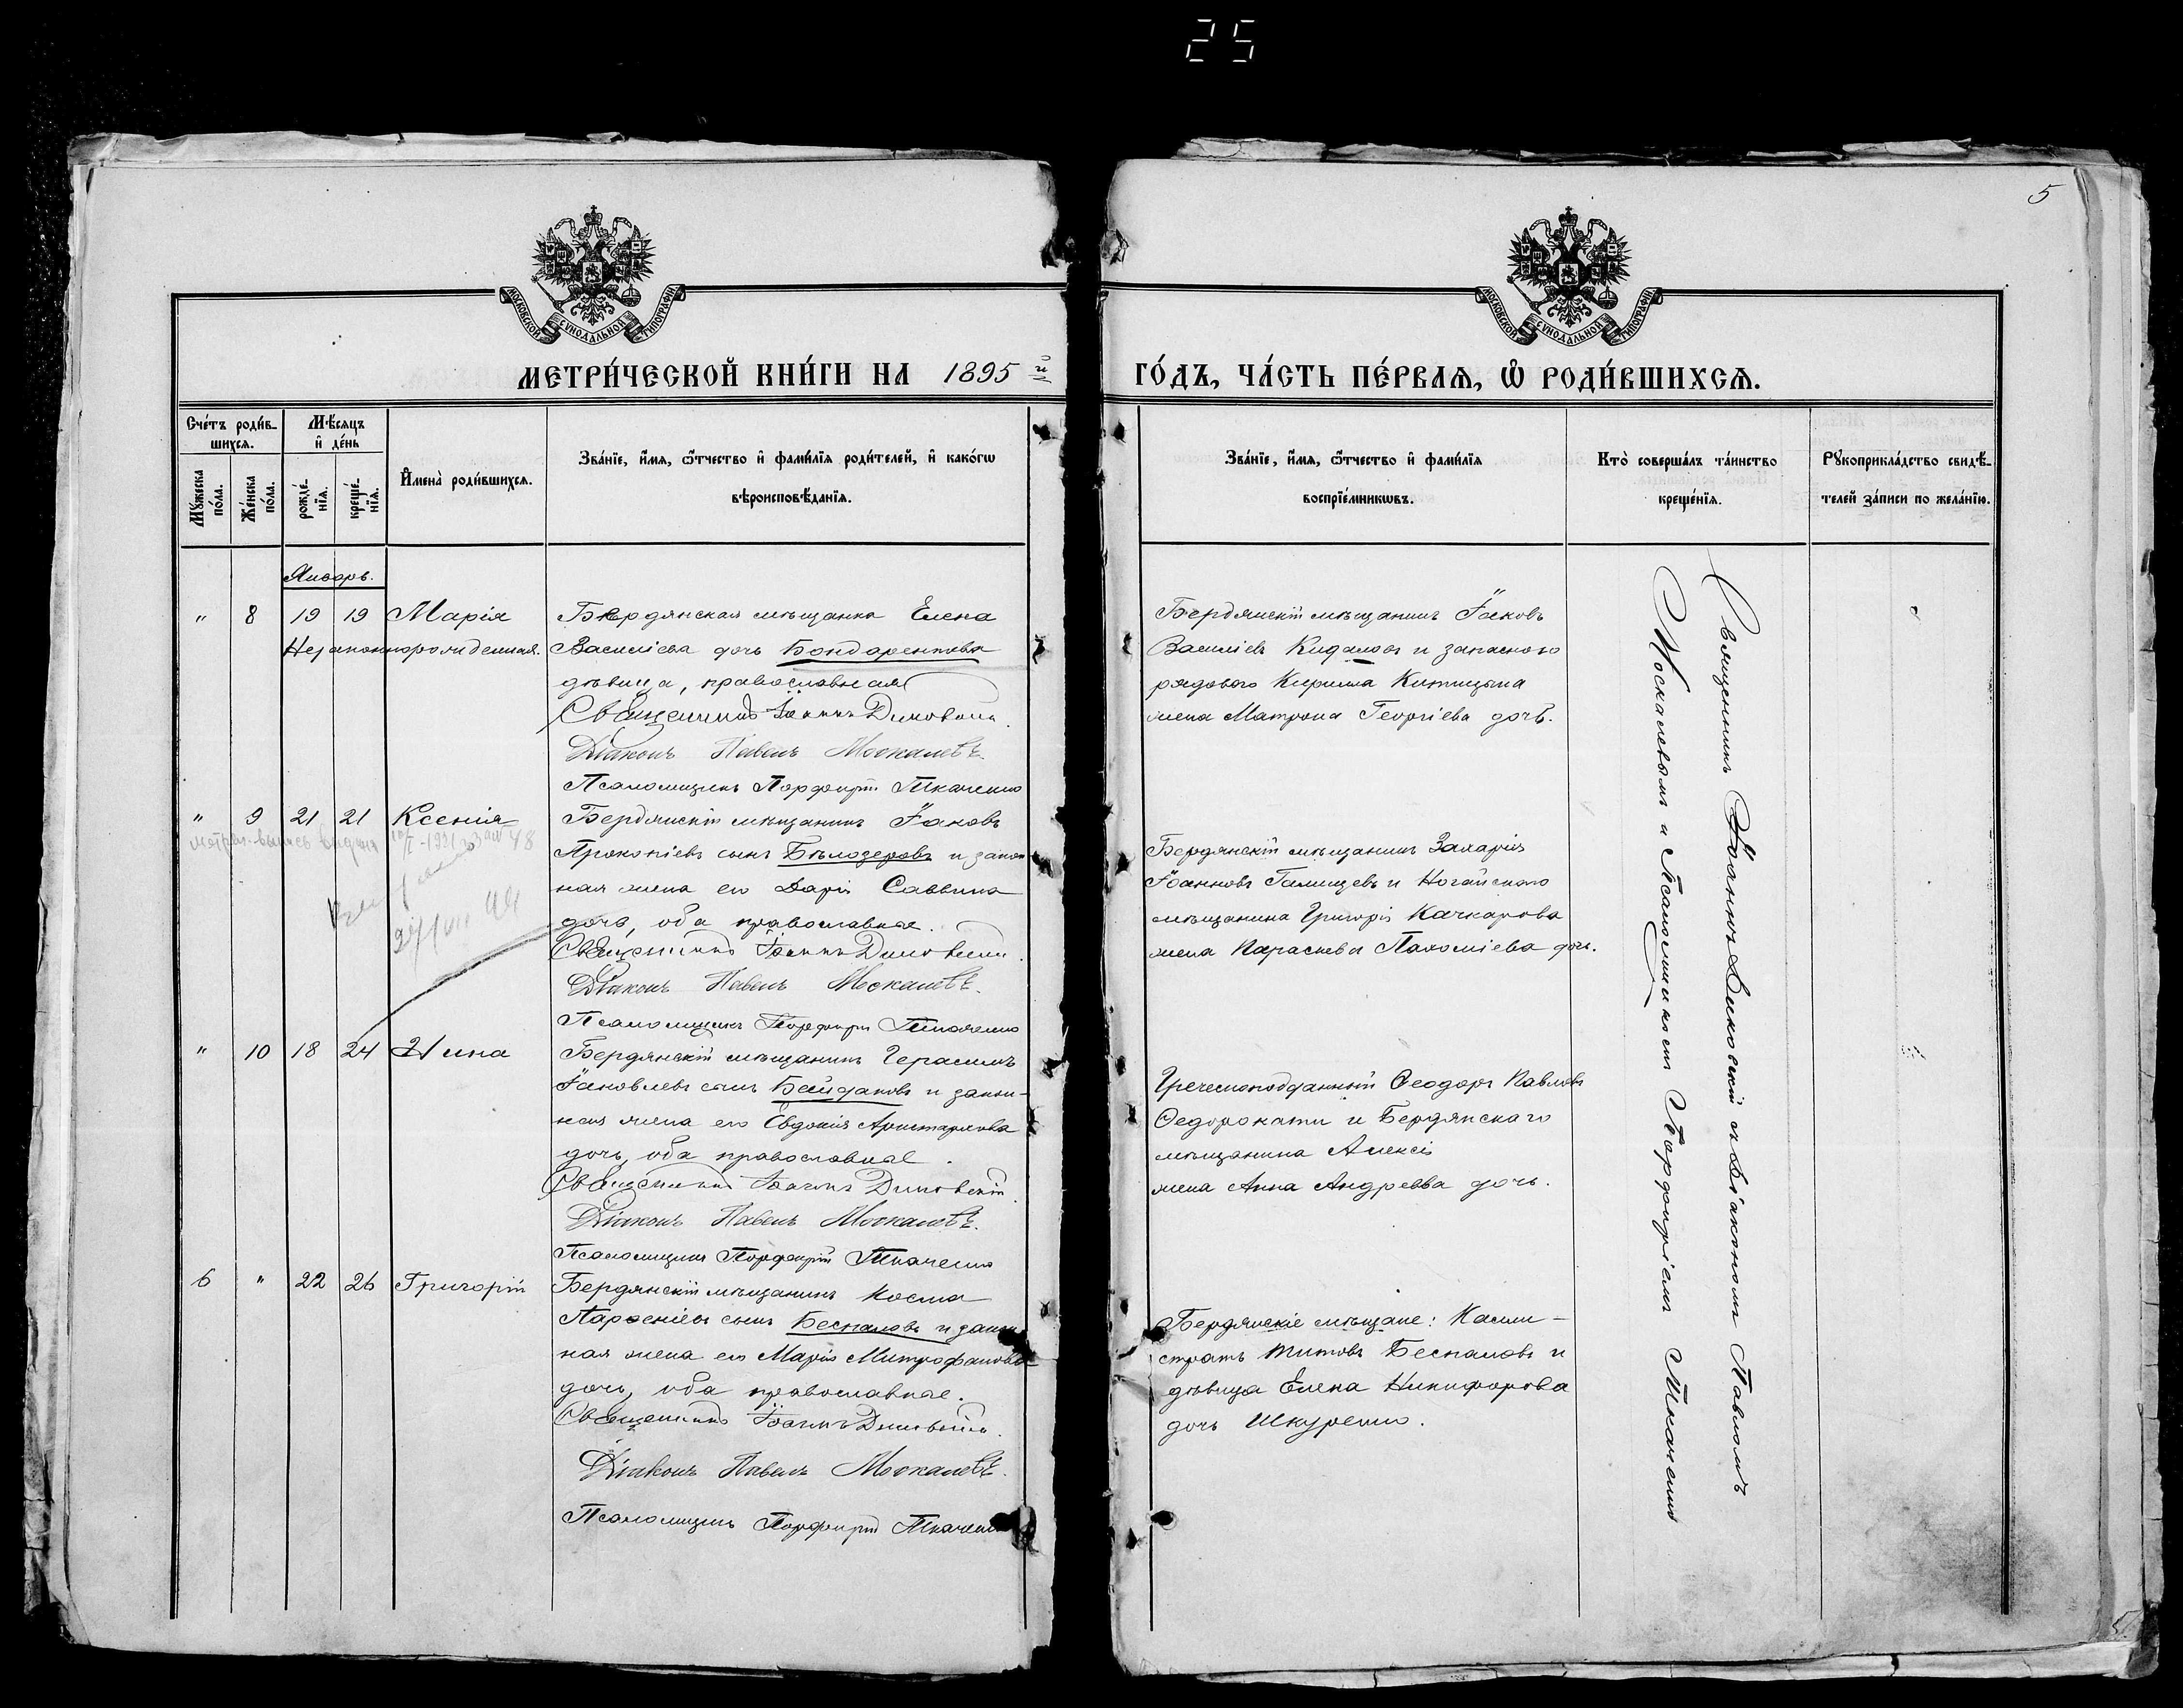 25
5
МОСКОВСКОЙ СѴНОДАЛЬНОЙ ТИПОГРАФІИ
МОСКОВСКОЙ СѴНОДАЛЬНОЙ ТИПОГРАФІИ
МЕТРИ́ЧЕСКОЙ КНИ́ГИ НА 1895 й
ГО́ДЪ, ЧА́СТЬ ПЕ́РВАѦ, Ѡ҆ РОДИ́ВШИХСѦ.
Сче́тъ роди́в-
шихсѧ.
Мꙋ́жеска по́ла.
Же́нска по́ла.
Мѣ́сѧцъ
и҆ де́нь
рожде́-
нїѧ.
креще́-
нїѧ.
И҆мена̀ роди́вшихсѧ.
Зва́нїе, и҆́мѧ, ѻ҆́тчество и҆ фами́лїѧ роди́телей, и҆ како́гѡ
вѣроисповѣ́данїѧ.
Зва́нїе, и҆́мѧ, ѻ҆́тчество и҆ фами́лїѧ
воспрїе́мникѡвъ.
Кто̀ соверша́лъ та́инство
креще́нїѧ.
Рꙋкоприкла́дство свидѣ́-
телей за́писи по жела́нїю.
Январь.
" 8 19 19 Марія
Незаконнорожденная.
Бердянская мѣщанка Елена
Василіева дочь Бондаренкова
дѣвица, православная
Священникъ Іоаннъ Диковскій.
Діаконъ Павелъ Москалевъ.
Псаломщикъ Порфирій Ткаченко
Бердянскій мѣщанинъ Іаковъ
Василіевъ и запаснаго
рядового Кирилла
жена Матрона Георгіева дочь.
" 9 21 21 Ксенія
метрич. выпись выдана
Бердянскій мѣщанинъ Іаковъ
Прокопіевъ сынъ Бѣлозеровъ и закон
ная жена его Дарія Саввина
дочь, оба православные.
Священникъ Іоаннъ Диковскій.
Діаконъ Павелъ Москалевъ.
Псаломщикъ Порфирій Ткаченко
Бердянскій мѣщанинъ Захарія
Іоанновъ Галищевъ и Ногайскаго
мѣщанина Григорія Качкарова
жена Параскева Пахоміева дочь.
" 10 18 24 Нина
Бердянскій мѣщанинъ Герасимъ
Іаковлевъ сынъ Байдаковъ и закон-
ная жена его Евдокія Аристархова
дочь, оба православные.
Священникъ Іоаннъ Диковскій.
Діаконъ Павелъ Москалевъ.
Псаломщикъ Порфирій Ткаченко
Греческоподданный Ѳеодоръ Павловъ
Ѳедорокати и Бердянскаго
мѣщанина Алексія
жена Анна Андреева дочь.
6 " 22 26 Григорій
Бердянскій мѣщанинъ Косма
Парѳеніевъ сынъ Беспаловъ и закон
ная жена его Марія Митрофанова
дочь, оба православные.
Священникъ Іоаннъ Диковскій.
Діаконъ Павелъ Москалевъ.
Псаломщикъ Порфирій Ткаченко
Бердянскіе мѣщане: Калли-
стратъ Титовъ Беспаловъ и
дѣвица Елена Никифорова
дочь Шкуренко.
Священникъ Іоаннъ Диковскій съ Діакономъ Павломъ
Москалевымъ и Псаломщикомъ Порфиріемъ Ткаченко